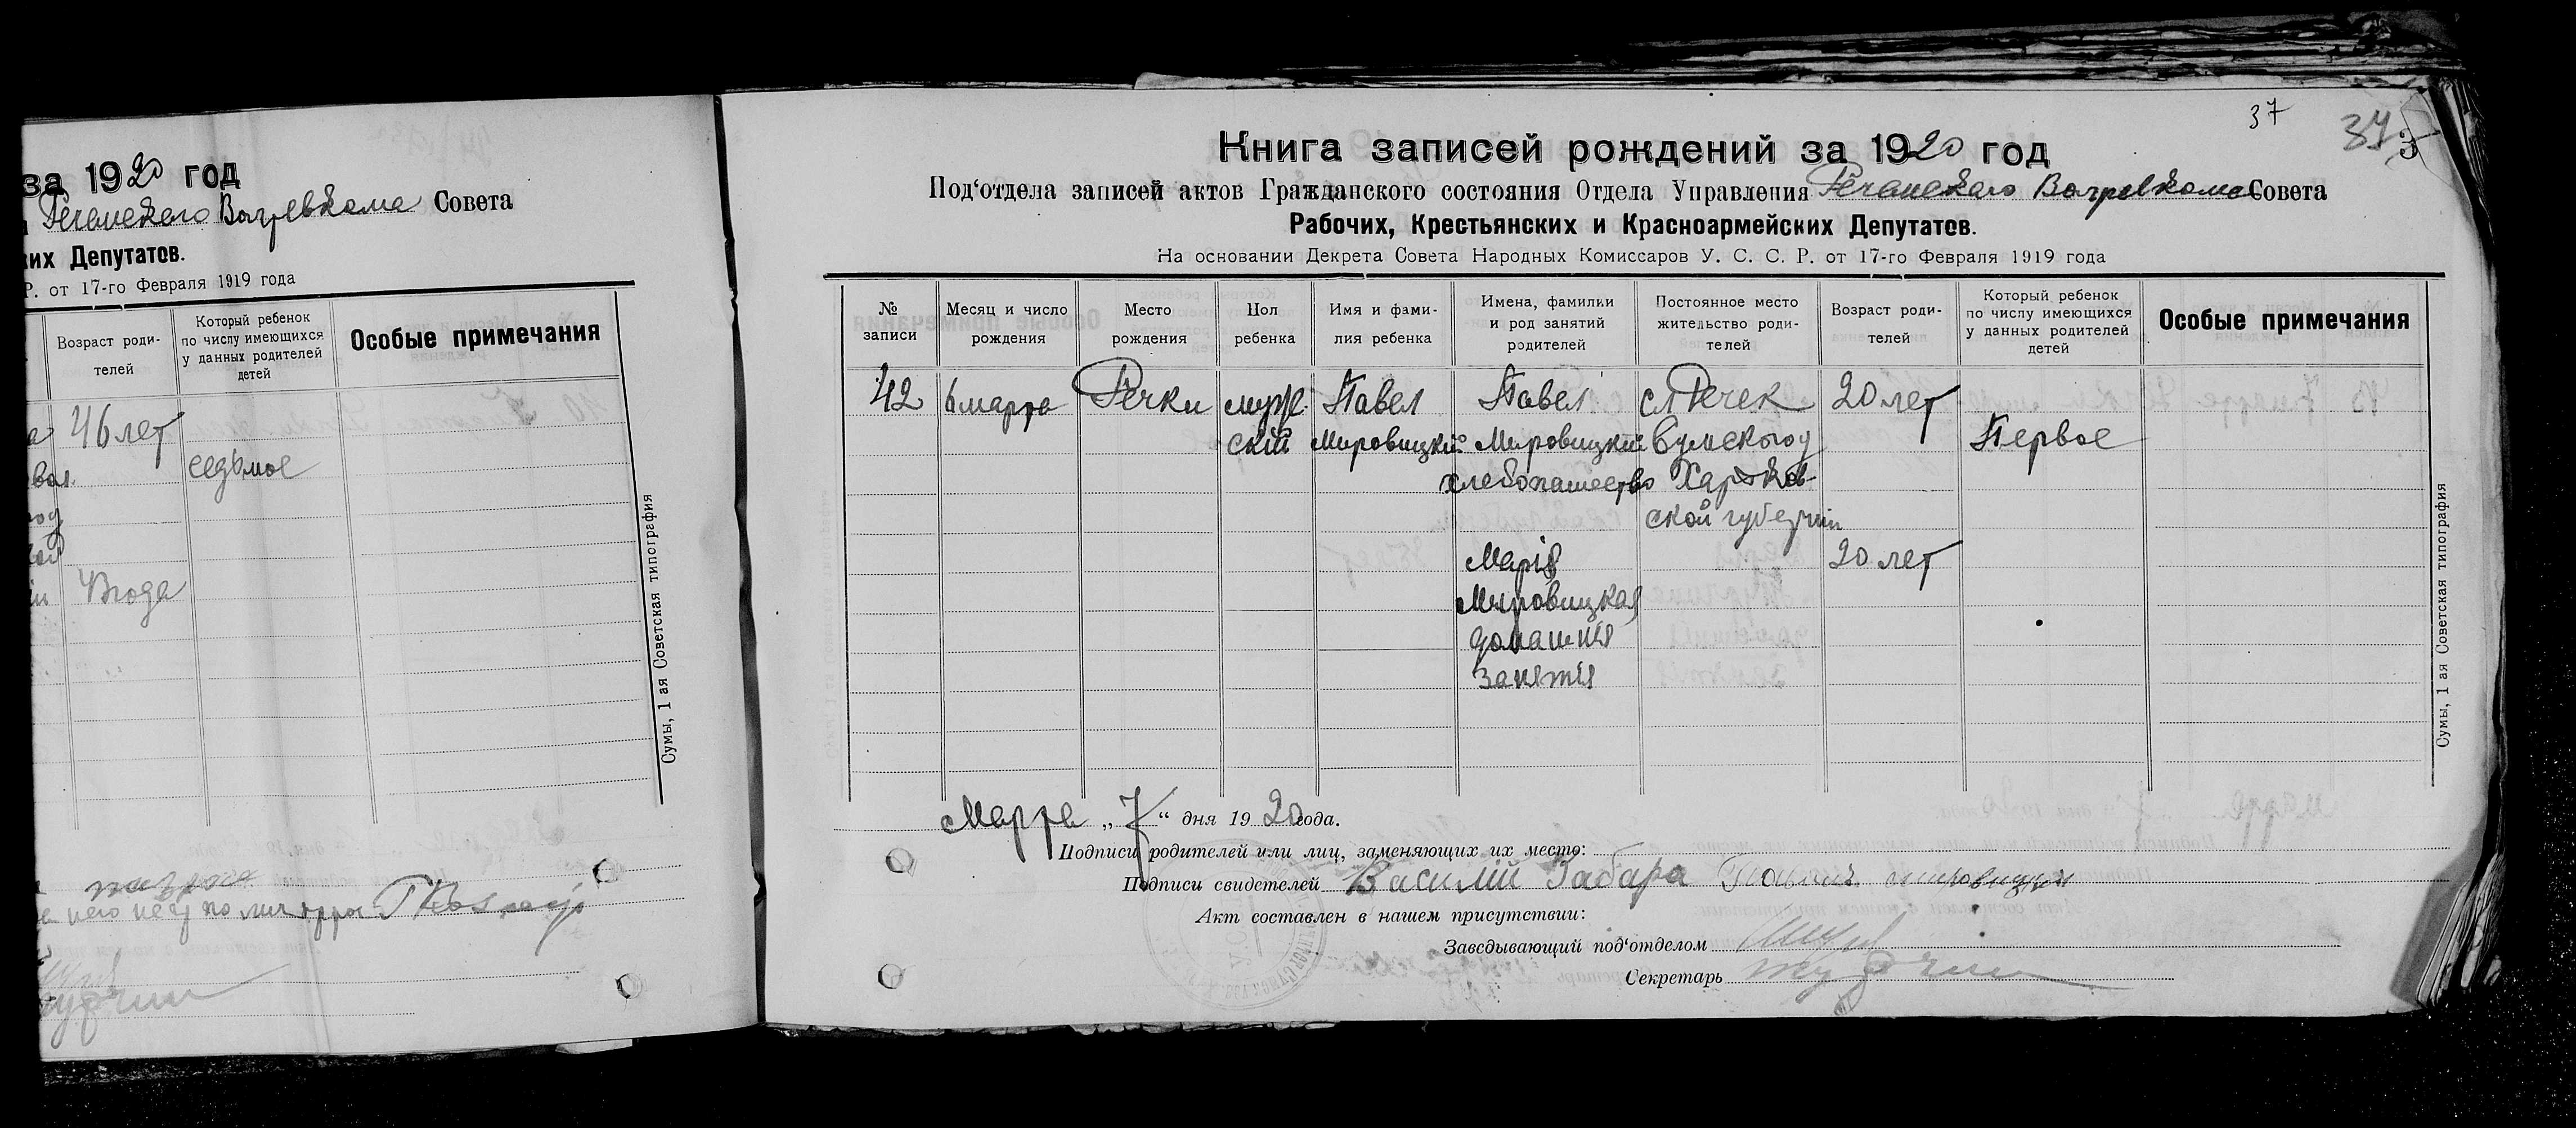 за 1920 год
Речанского Волревкома Совета
ких Депутатов.
Р. от 17-го Февраля 1919 года
Возраст роди-
телей
Который ребенок
по числу имеющихся
у данных родителей
детей
Особые примечания
46 лет
седьмое
43 года
Сумы, 1 ая Советская типография
37
37
Книга записей рождений за 1920 год
Под‘отдела записей актов Гражданского состояния Отдела Управления Речанского Волревкома Совета
Рабочих, Крестьянских и Красноармейских Депутатов.
На основании Декрета Совета Народных Комиссаров У. С. С. Р. от 17-го Февраля 1919 года
№
записи
Месяц и число
рождения
Место
рождения
Пол
ребенка
Имя и фами-
лия ребенка
Имена, фамилии
и род занятий
родителей
Постоянное место
жительство роди-
телей
Возраст роди-
телей
Который ребенок
по числу имеющихся
у данных родителей
детей
Особые примечания
42 6 марта Речки муж. Павел Павел сл Речек 20 лет
скій Мировицкій Мировицкій Сумского у Первое
хлебопашество Харьков-
ской губерніи
Марія 20 лет
Мировицкая
домашнія
занятія
Сумы, 1 ая Советская типография
Марта „7“ дня 1920 года.
Подписи родителей или лиц, заменяющих их место:
Подписи свидетелей Василій Габара
Акт составлен в нашем присутствии:
Заведывающий под‘отделом
Секретарь